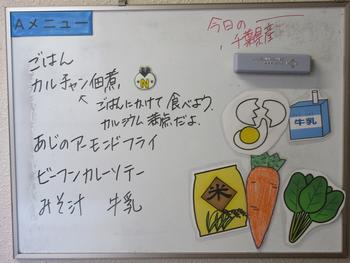 Aメニュー
今日の
千葉県産
ごはん
カルチャン佃煮
ごはんにかけて食べよう。
カルシウム満点だよ。
あじのアーモンドフライ
ビーフンカレーソテー
みそ汁 牛乳
牛乳
米